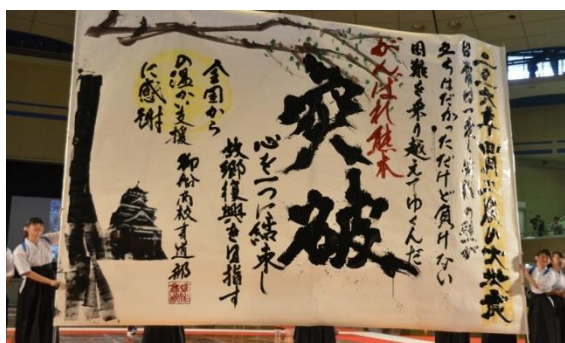 大地震
日常は一変し
の壁が
立ちはだかっただけど負けない
困難を乗り越えてゆくんだ
がんばれ熊本
突破
心を一つに結束し
故郷復興を目指す
全国から
の温かい支援
に感謝
御船高校書道部